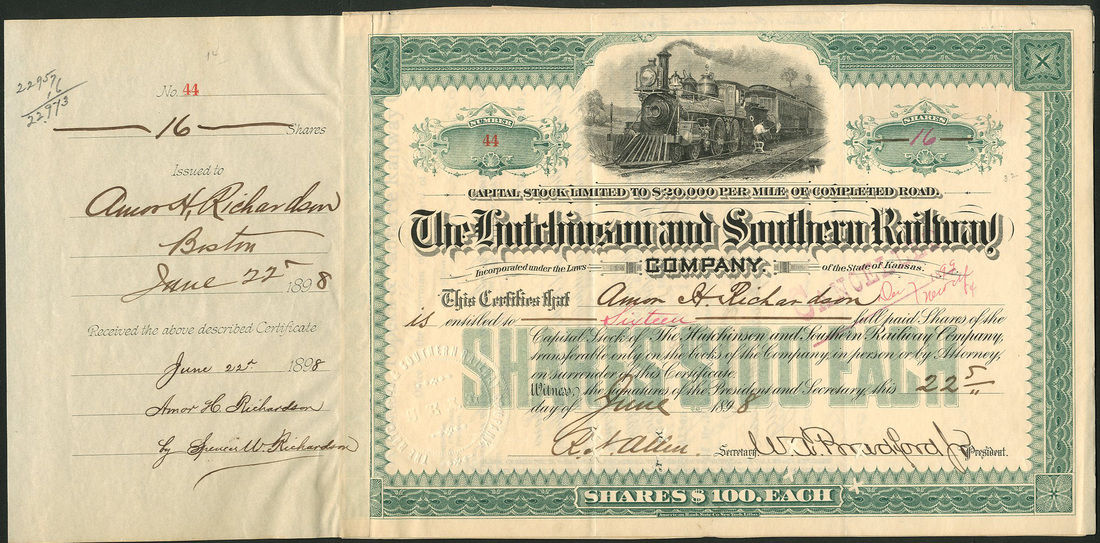 22957
16
22973
No. 44
16 Shares
Issued to
Amor H. Richardson
Boston
June 22d 1898
Received the above described Certificate
June 22d 1898
Amor H. Richardson
by Spencer W. Richardson
NUMBER
44
SHARES
16
CAPITAL STOCK LIMITED TO $20,000 PER MILE OF COMPLETED ROAD.
The Hutchinson and Southern Railway
COMPANY.
Incorporated under the Laws of the State of Kansas.
This Certifies that Amor H Richardson
is entitled to Sixteen full paid Shares of the
Capital Stock of The Hutchinson and Southern Railway Company,
transferable only on the books of the Company in person or by Attorney,
on surrender of this Certificate.
Witness, the signatures of the President and Secretary, this 22d
day of June 1898
SHARES $100 EACH
Secretary. President.
SHARES $100. EACH
American Bank Note Co. New York.